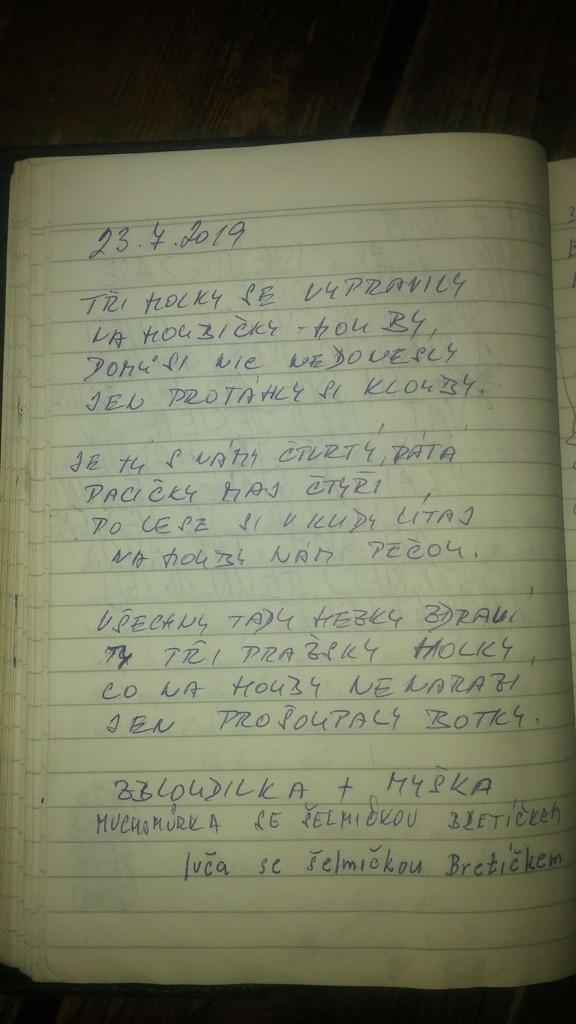 23.7.2019
TŘI HOLKY SE VYPRAVILY
NA HOUBIČKY - HOUBY,
DOMŮ SI NIC NEDONESLY
JEN PROTÁHLY SI KLOUBY.
JE TU S NÁMI ČTVRTÝ, PÁTÁ
PACIČKY MAJ ČTYŘI,
PO LESE SI V KLIDU LÍTAJ
NA HOUBY NÁM PEČOU.
VŠECHNY TADY HEZKY ZDRAVÍ
TY TŘI PRAŽSKY HOLKY,
CO NA HOUBY NENARAZÍ
JEN PROŠOUPALY BOTKY.
BLOUDILKA + MYŠKA
MUCHOMŮRKA SE ŠELMIČKOU BRETÍČKEM
luča se šelmičkou Bretičkem